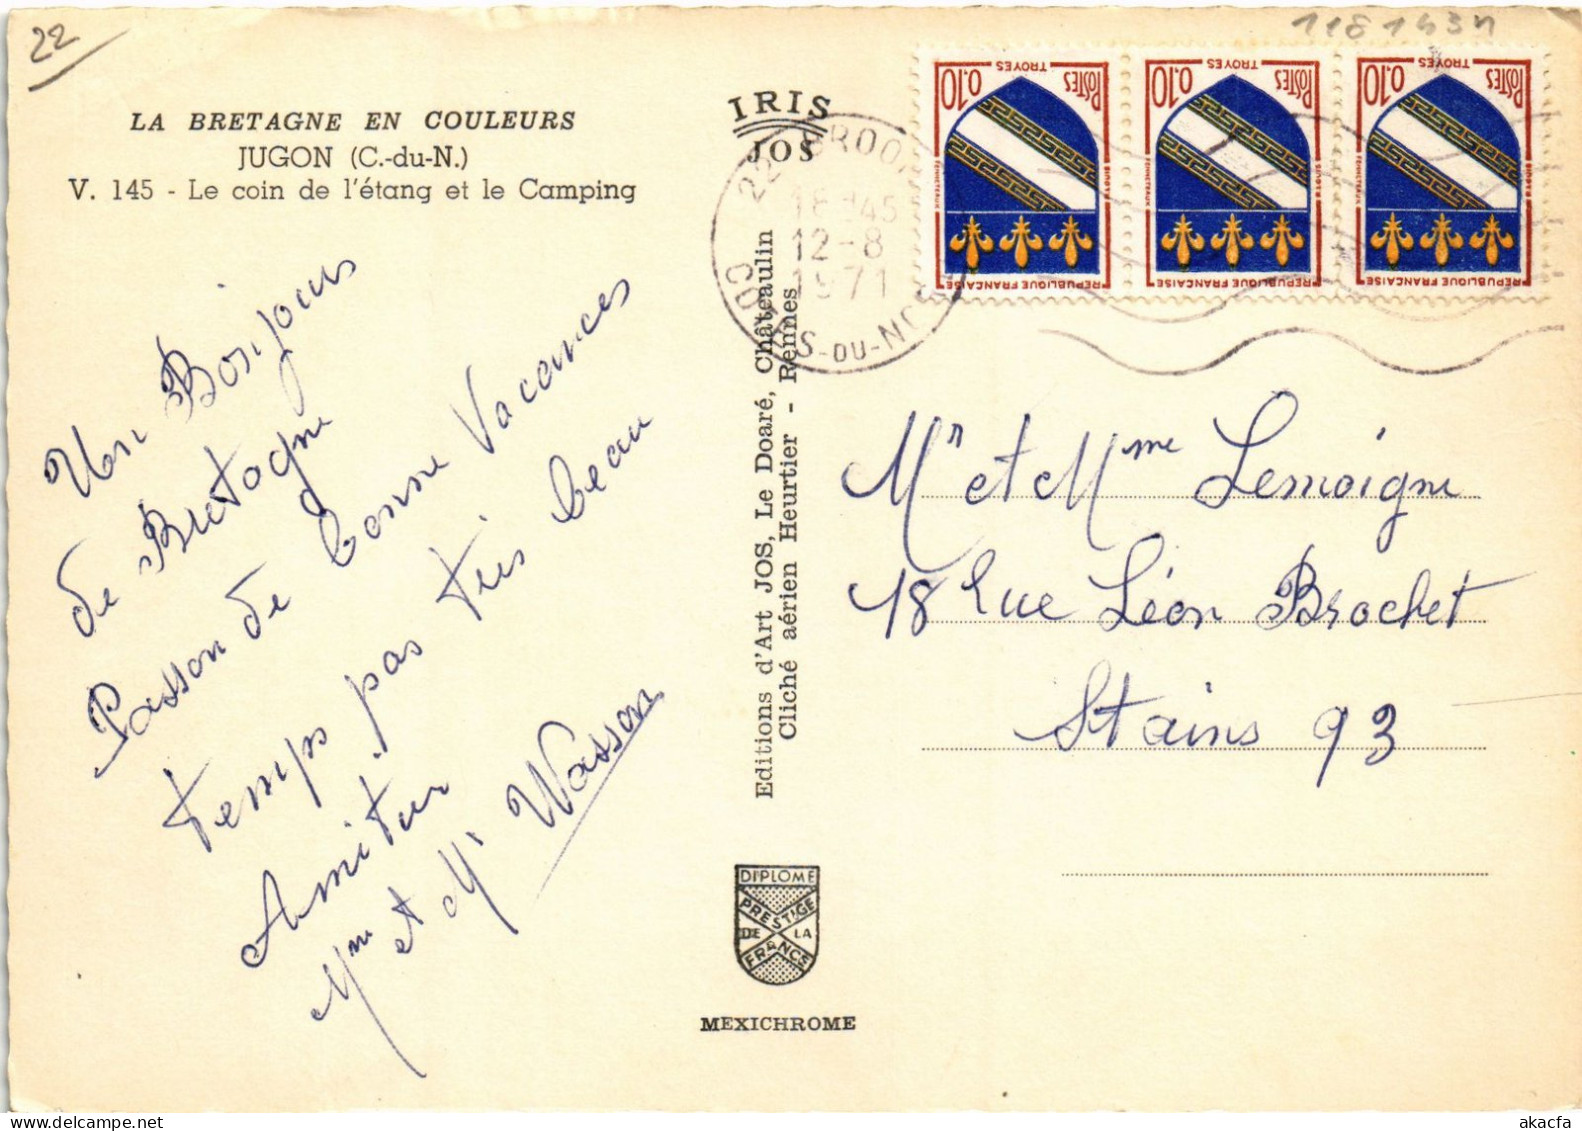 22
1181434
LA BRETAGNE EN COULEURS
JUGON (C.-du-N.)
V. 145 - Le coin de l'étang et le Camping
IRIS
JOS
22 BROONS
18 H45
12-8
1971
COTES-DU-NORD
0,10 POSTES TROYES
RÉPUBLIQUE FRANÇAISE
0,10 POSTES TROYES
RÉPUBLIQUE FRANÇAISE
0,10 POSTES TROYES
RÉPUBLIQUE FRANÇAISE
Un Bonjour
de Bretagne
Passon de bonne Vacances
temps pas tres beau
Amitier
Mme et Mr Wasson
Editions d'Art JOS, Le Doaré, Châteaulin
Cliché aérien Heurtier - Rennes
Mr et Mme Lemoigne
18 rue Léon Brochet
Stains 93
DIPLOME
PRESTIGE
DE LA
FRANCE
MEXICHROME
akacfa
www.delcampe.net